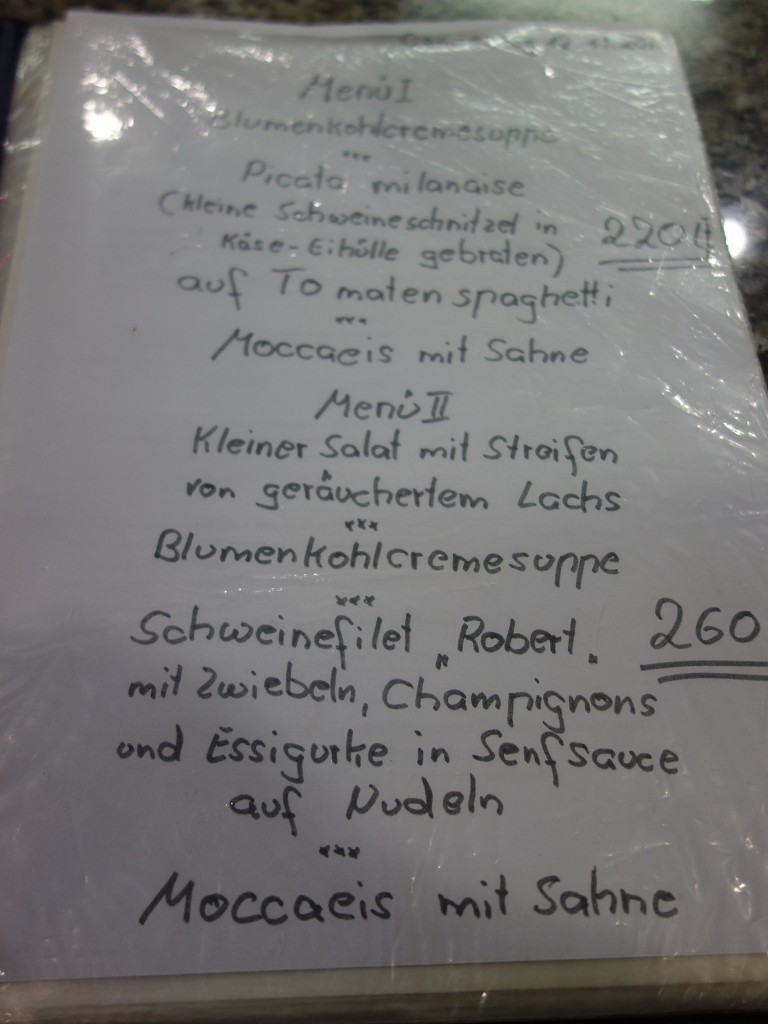 Menü I
Blumenkohlcremesuppe
***
Picata milanaise
(kleine Schweineschnitzel in
Käse-Eihülle gebraten)
220
auf Tomatenspaghetti
***
Moccaeis mit Sahne
Menü II
Kleiner Salat mit Streifen
von geräuchertem Lachs
***
Blumenkohlcremesuppe
***
Schweinefilet „Robert"
260
mit Zwiebeln, Champignons
und Essigurke in Senfsauce
auf Nudeln
***
Moccaeis mit Sahne